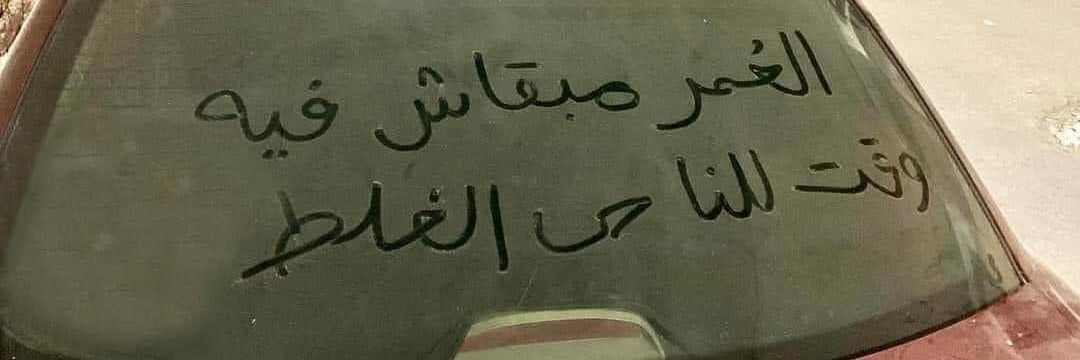 العُمر مبقاش فيه
وقت للناس الغلط